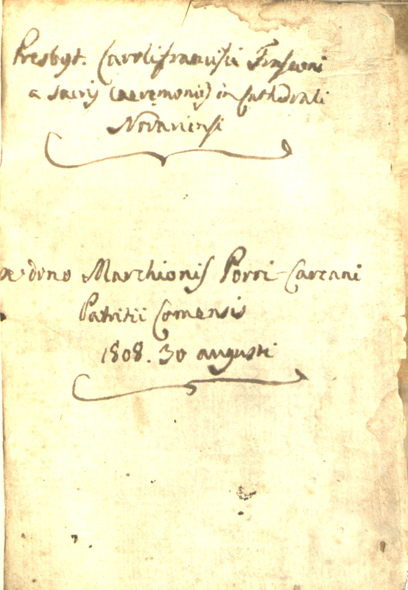 Presbyt. Carolifrancisci Frasconi
a sacris caeremoniis in Cathedrali
Novariensi
ex dono Marchionis Porri-Carcani
Patritii Comensis
1808. 30 augusti